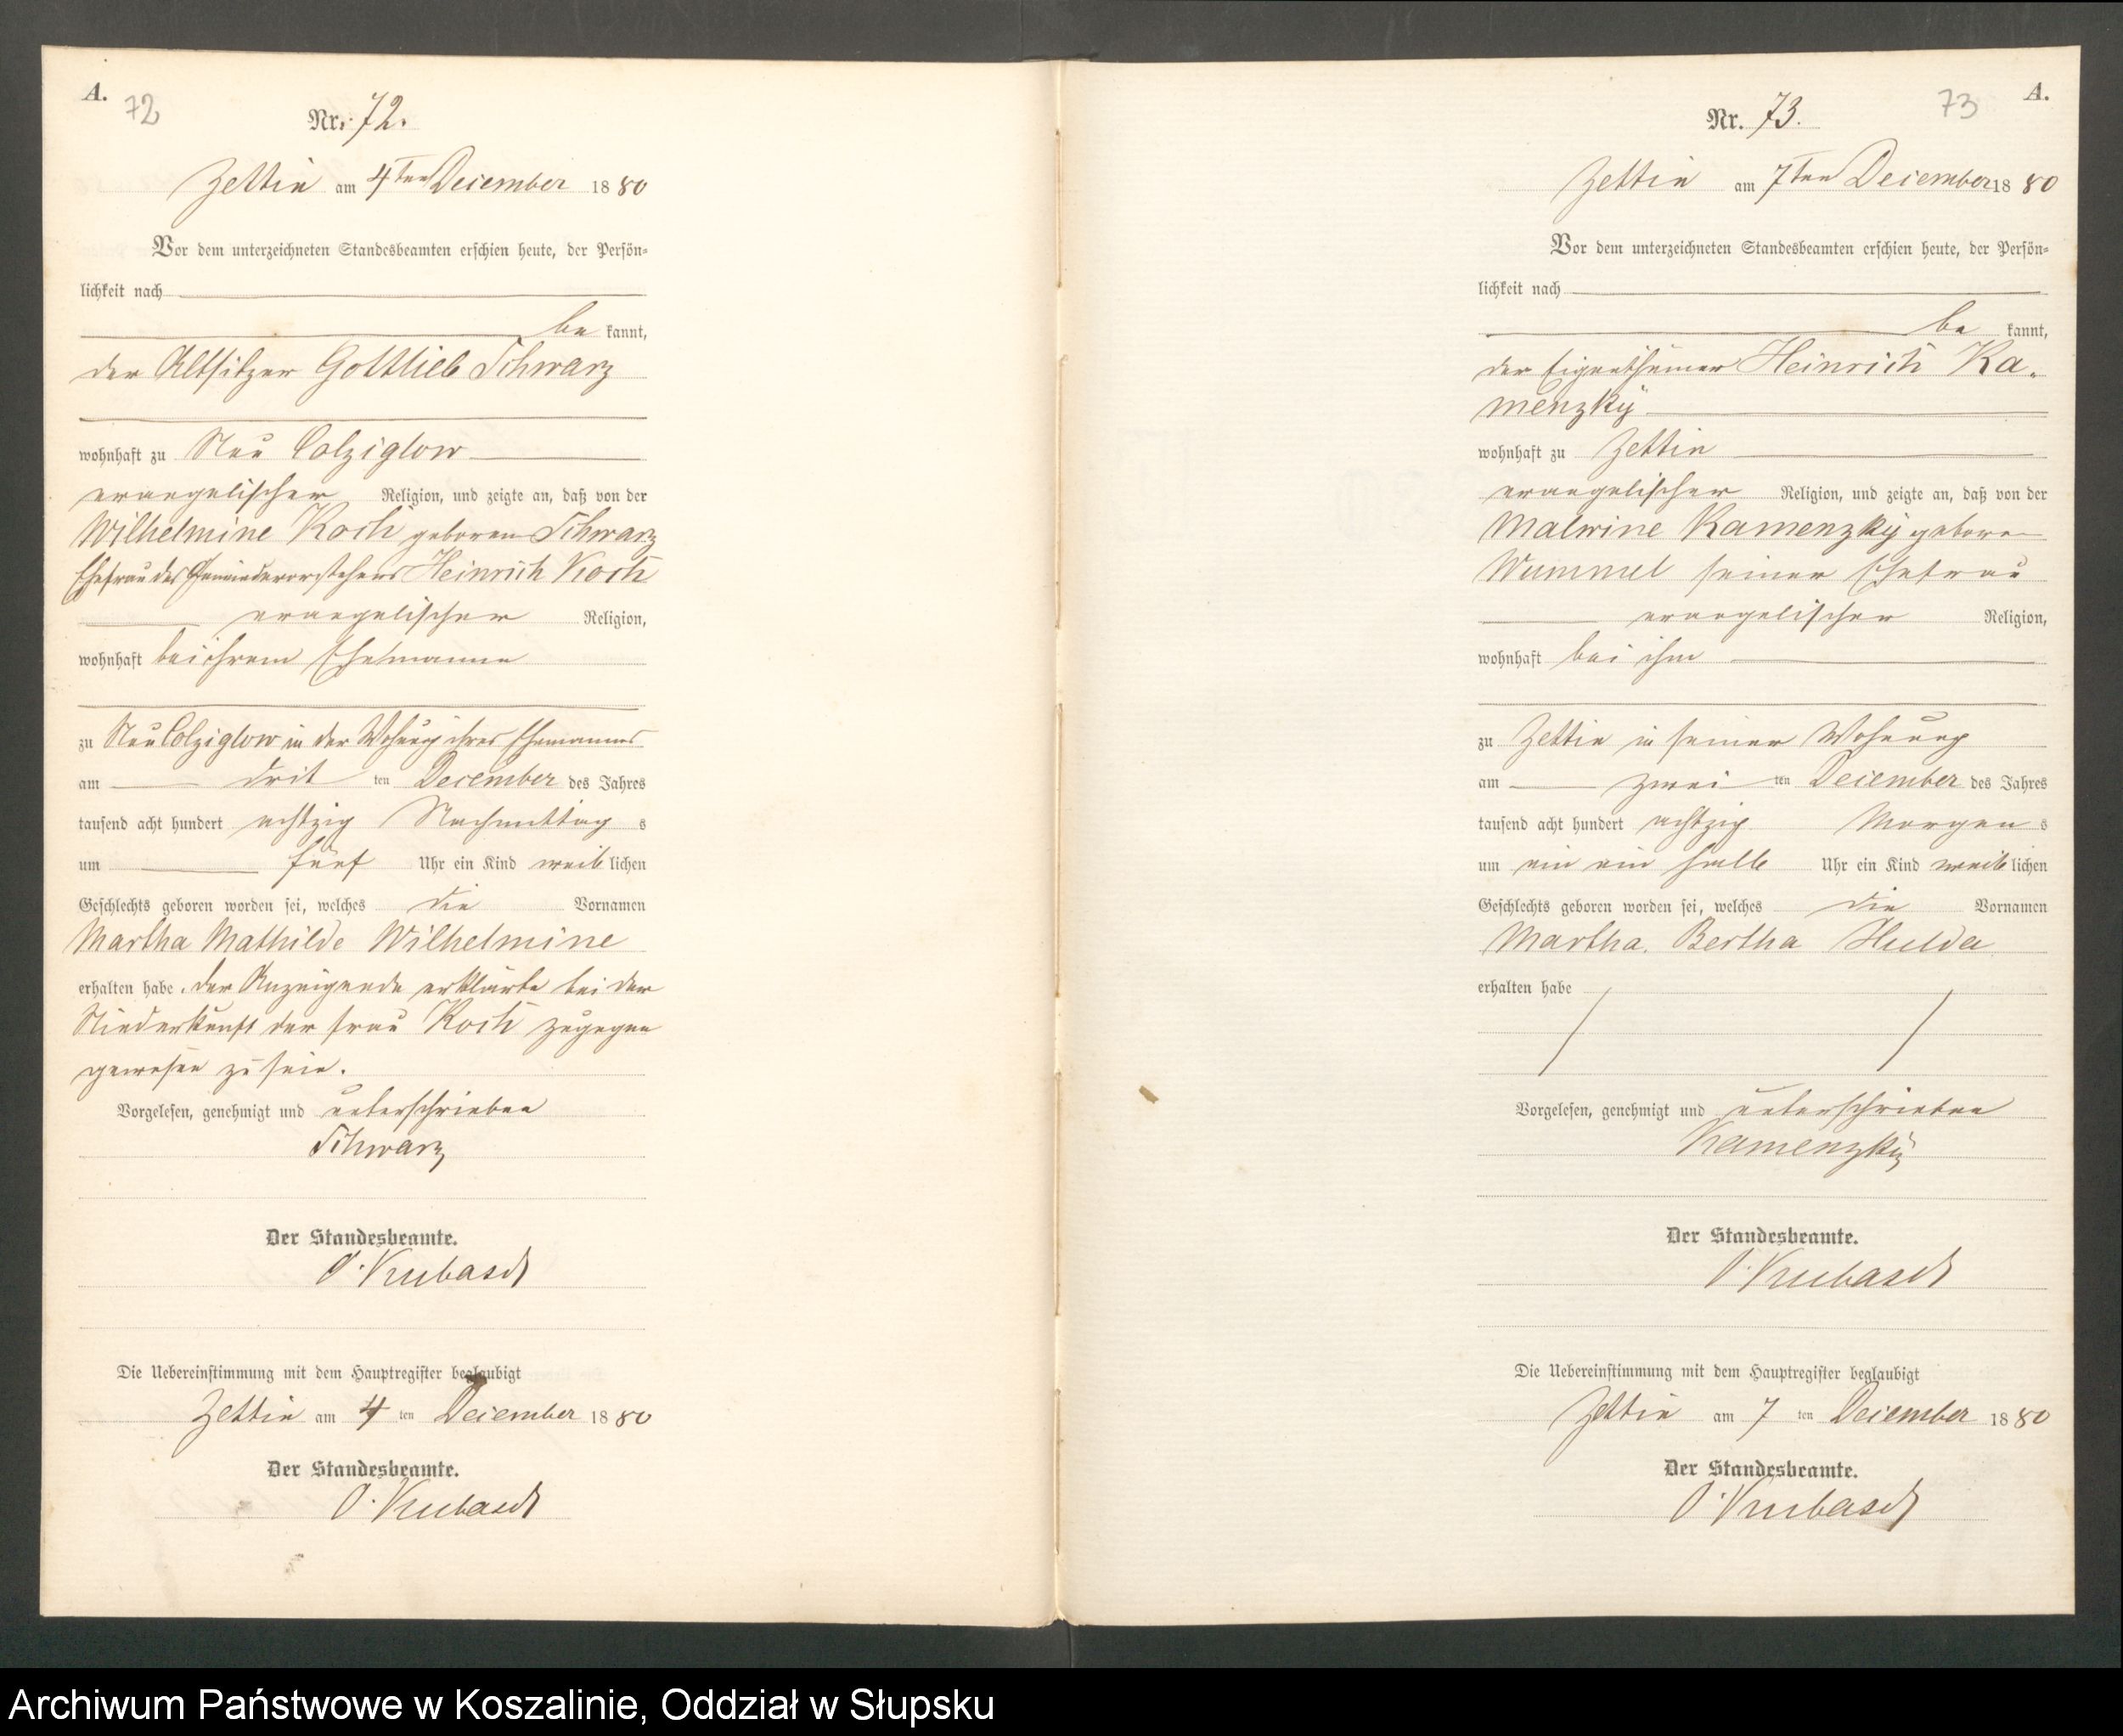 A.
72
Nr. 72.
Zettin am 4ten December 1880
Vor dem unterzeichneten Standesbeamten erschien heute, der Persön-
lichkeit nach
be kannt,
der Altsitzer Gottlieb Schwarz
wohnhaft zu Neu Colziglow
evangelischer Religion, und zeigte an, daß von der
Wilhelmine Koch geboren Schwarz
Ehefrau des Gemeindevorstehers Heinrich Koch
evangelischer Religion,
wohnhaft bei ihrem Ehemanne
zu Neu Colziglow in der Wohnung ihres Ehemannes
am drit ten December des Jahres
tausend acht hundert achtzig Nachmittag s
um fünf Uhr ein Kind weib lichen
Geschlechts geboren worden sei, welches die Vornamen
Martha Mathilde Wilhelmine
erhalten habe. Der Anzeigende erklärte bei der
Niederkunft der Frau Koch zugegen
gewesen zu sein.
Vorgelesen, genehmigt und unterschrieben
Schwarz
Der Standesbeamte.
O. Krubasch
Die Uebereinstimmung mit dem Hauptregister beglaubigt
Zettin am 4 ten December 1880
Der Standesbeamte.
O. Krubasch
A.
73
Nr. 73.
Zettin am 7ten December 1880
Vor dem unterzeichneten Standesbeamten erschien heute, der Persön-
lichkeit nach
be kannt,
der Eigenthümer Heinrich Ka-
menzky
wohnhaft zu Zettin
evangelischer Religion, und zeigte an, daß von der
Malwine Kamenzky geboren
Wummel seiner Ehefrau
evangelischer Religion,
wohnhaft bei ihm
zu Zettin in seiner Wohnung
am zwei ten December des Jahres
tausend acht hundert achtzig Morgen s
um ein ein halb Uhr ein Kind weib lichen
Geschlechts geboren worden sei, welches die Vornamen
Martha Bertha Hulda
erhalten habe
Vorgelesen, genehmigt und unterschrieben
Kamenzky
Der Standesbeamte.
O. Krubasch
Die Uebereinstimmung mit dem Hauptregister beglaubigt
Zettin am 7 ten December 1880
Der Standesbeamte.
O. Krubasch
Archiwum Państwowe w Koszalinie, Oddział w Słupsku